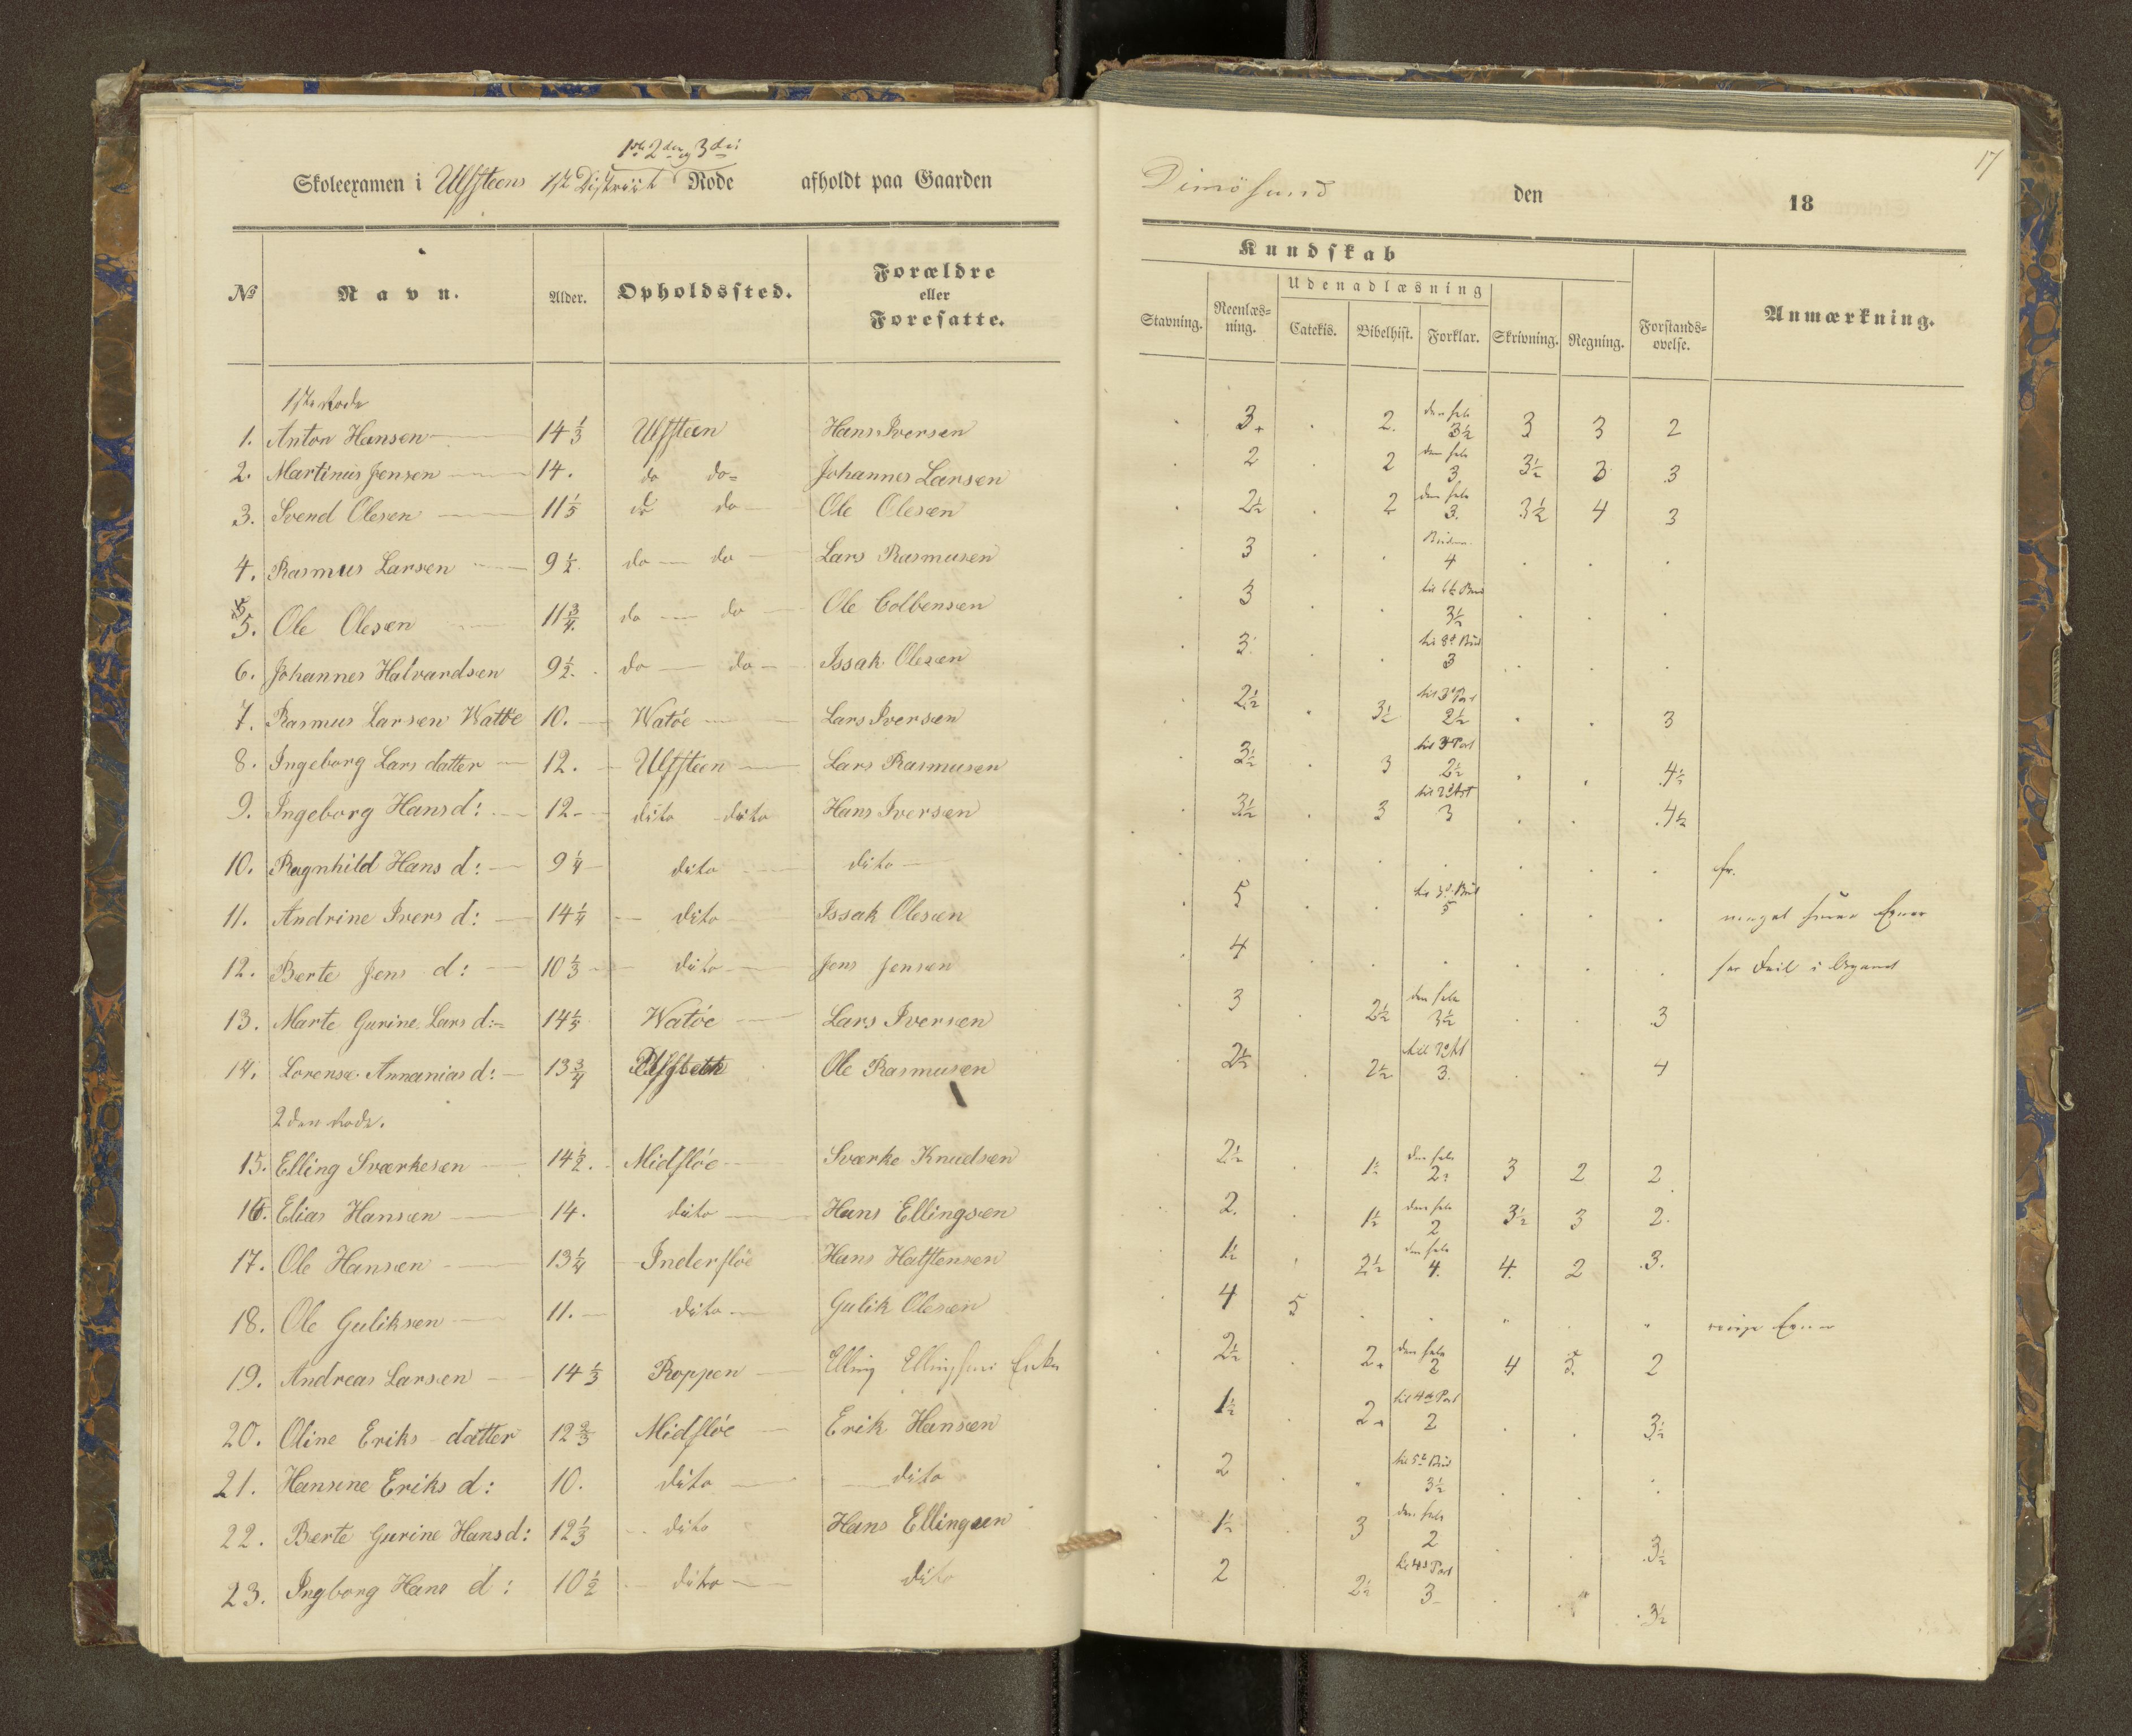 1ste 2den og 3die
Skoleexamen i Ulfsteens 1ste Distrikt Rode afholdt paa Gaarden Dimösund den 18 17
Kundskab
Udenadlæsning
№ Navn. Alder. Opholdssted. Forældre eller Foresatte. Stavning. Reenlæsning. Catekis. Bibelhist. Forklar. Skrivning. Regning. Forstandsøvelse. Anmærkning.
1ste Rode
1. Anton Hansen 14 1/3 Ulfsteen Hans Iversen 3+ 2. den hele 3 1/2 3 3 2
2. Martinus Jensen 14. do do Johannes Larsen 2 2 den hele 3 3 1/2 3 3
3. Svend Olesen 11 1/5 do do Ole Olesen 2 1/2 2 den hele 3. 3 1/2 4 3
4. Rasmus Larsen 9 1/2 do do Lars Rasmusen 3 4
5. Ole Olesen 11 3/4 do do Ole Colbensen 3 3 1/2
6. Johannes Halvardsen 9 1/2 do do Issak Olesen 3 til 8de Bud 3
7. Rasmus Larsen Watöe 10. Watöe Lars Iversen 2 1/2 3 1/2 til 3die Part 2 1/2 3
8. Ingeborg Lars datter 12. Ulfsteen Lars Rasmusen 3 1/2 3 til 3die Part 2 1/2 4 1/2
9. Ingeborg Hans d: 12 dito dito Hans Iversen 3 1/2 3 3 4 1/2
10. Ragnhild Hans d: 9 1/4 dito dito
11. Andrine Ivers d: 14 1/4 dito Issak Olesen 5 5
12. Berte Jens d: 10 1/3 dito Jens Jensen 4 har Feil i
13. Marte Gurine Lars d: 14 1/5 Watöe Lars Iversen 3 2 1/2 den hele 3 1/2 3
14. Lorense Annanias d: 13 3/4 Ulfsteen Ole Rasmusen 2 1/2 2 1/2 3. 4
2den Rode.
15. Elling Sværkesen 14 1/2. Midflöe Sværke Knudsen 2 1/2 1 1/2 den hele 2 3 2 2
16. Elias Hansen 14. dito Hans Ellingsen 2. 1 1/2 den hele 2 3 1/2 3 2.
17. Ole Hansen 13 1/4 Inderflöe Hans Halstensen 1 1/2 2 1/2 den hele 4. 4. 2 3.
18. Ole Guliksen 11. dito Gulik Olesen 4 5
19. Andreas Larsen 14 1/3 Roppen Elling Ellingsens Enke 2 1/2 2. den hele 2 4 3. 2
20. Oline Eriks datter 12 2/3 Midflöe Erik Hansen 1 1/2 2 til 4de Part 2 3 1/2
21. Hansine Eriks d: 10. dito dito 2 til 5te Bud 3 1/2
22. Berte Gurine Hans d: 12 1/3 dito Hans Ellingsen 1 1/2 3 den hele 2 3 1/2
23. Ingborg Hans d: 10 1/2 dito dito 2 2 1/2 til 4de Part 3 3 1/2